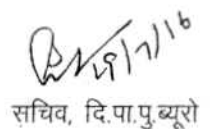 19/7/16
सचिव, दि.पा.पु.ब्यूरो